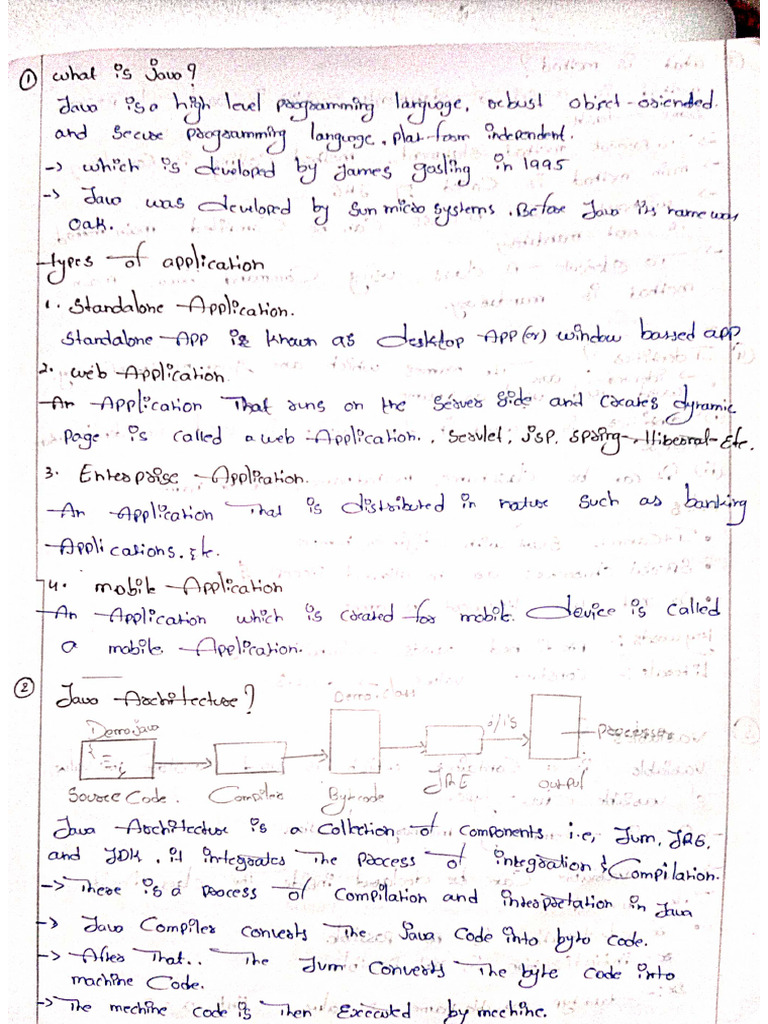 ① What is Java?
Java is a high level programming language, robust object-oriended
and secure programming language, plat-form independent.
-> which is developed by James gosling in 1995
-> Java was developed by Sun micro systems. Before Java its name was
Oak.
Types of application
1. Standalone Application.
Standalone App is known as desktop App (or) window bassed app.
2. Web Application
An Application That runs on the server side and creates dynamic
page is called a web Application. Servlet, JSP, Spring, Etc.
3. Enterprise Application.
An Application That is distributed in nature such as banking
Applications. etc.
4. mobile Application
An Application which is created for mobile. Device is called
a mobile Application.
② Java Architecture?
Demo.Java Demo.class 0/1's
Processor
Source Code. Compiler Bytecode JRE output
Java Architecture is a Collection of components i.e, Jvm, JRE,
and JDK. it integrates The Process of integration & Compilation.
-> There is a process of Compilation and interpretation in Java
-> Java Compiler converts The Java Code into byte code.
-> After That.. The Jvm Converts The byte Code into
machine Code.
-> The mechine code is Then Executed by mechine.